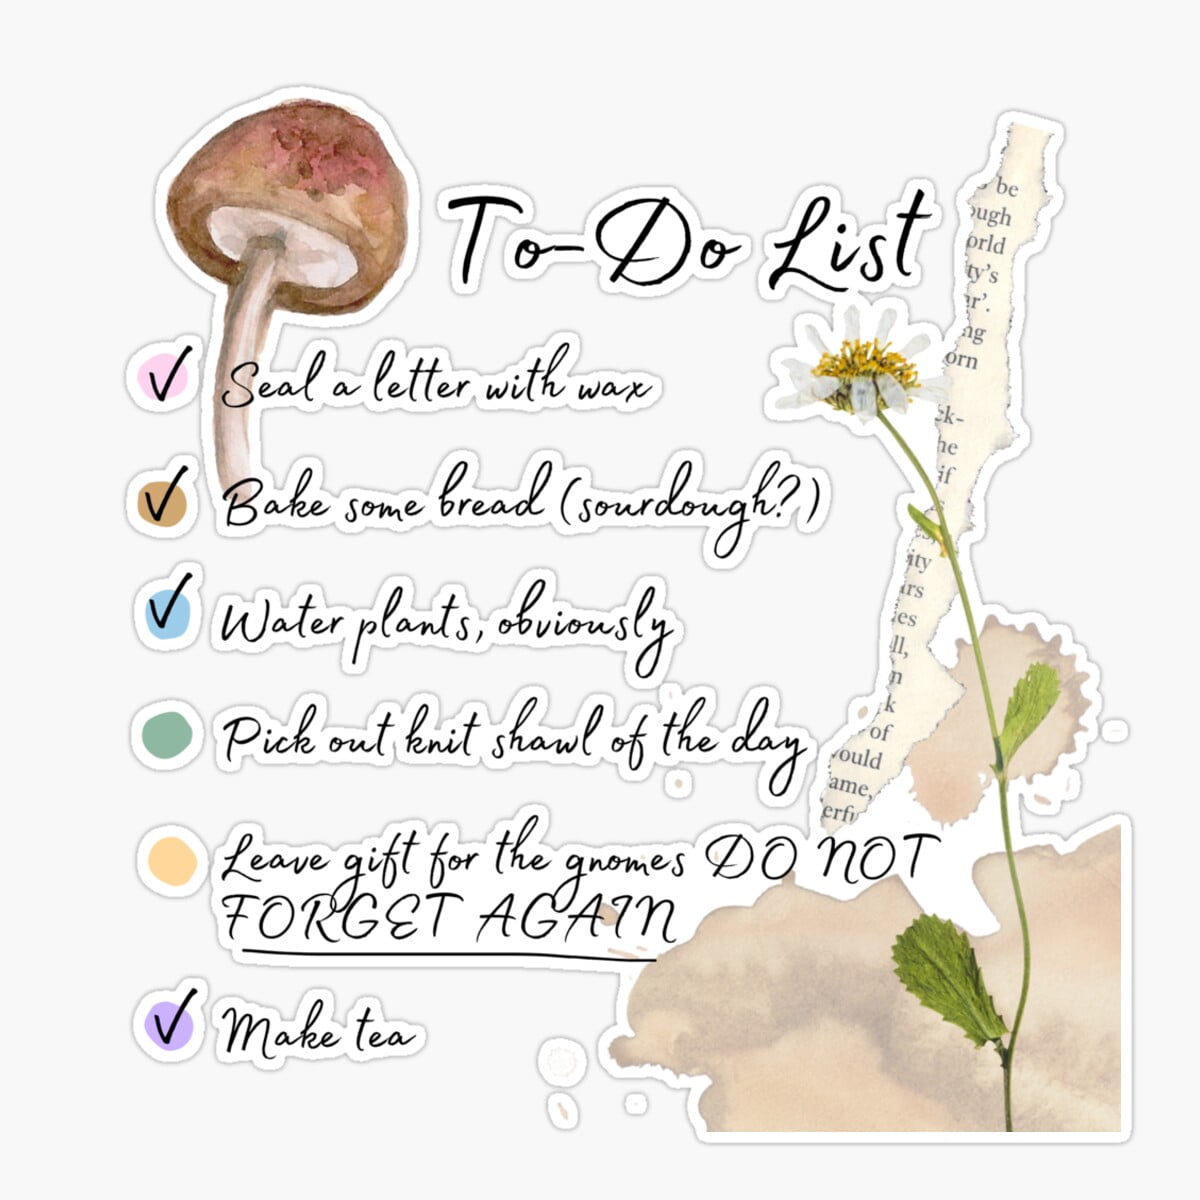 To-Do List
be
ough
orld
ty's
er'.
ng
orn
ck-
he
if
Seal a letter with wax
Bake some bread (sourdough?)
Water plants, obviously
ity
irs
es
ll,
n
k
of
ould
ame,
erfu
Pick out knit shawl of the day
Leave gift for the gnomes DO NOT
FORGET AGAIN
Make tea